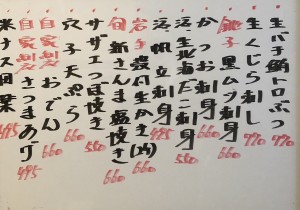 生バチ鮪トロぶつ 770
生くじら刺し 770
銚子 黒ムツ刺身 660
かつお刺身 660
活〆生北海だこ刺身 550
活帆立刺身 495
岩手 濃厚生かき(2ヶ) 660
旬 新さんま塩焼き 660
サザエつぼ焼き 550
穴子天ぷら 660
自家製 おでん 660
自家製 さつまあげ 495
米ナス田楽 495